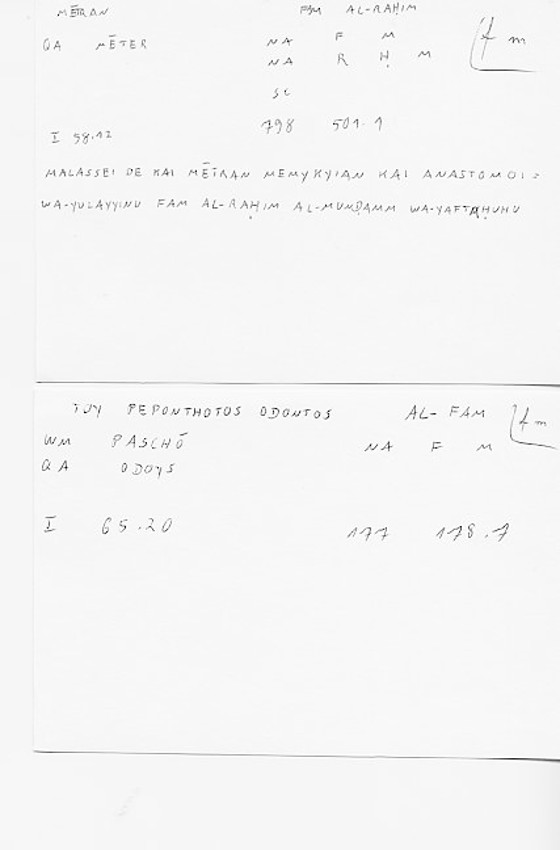 MĒTRAN FAM AL-RAḤIM
QA MĒTER NA F M f m
NA R Ḥ M
sc
I 58.12 798 501.1
MALASSEI DE KAI MĒTRAN MEMYKYIAN KAI ANASTOMOI =
WA-YULAYYINU FAM AL-RAḤIM AL-MUNḌAMM WA-YAFTAḤUHU
TOY PEPONTHOTOS ODONTOS AL-FAM f m
WM PASCHŌ NA F M
QA ODOYS
I 65.20 177 178.7